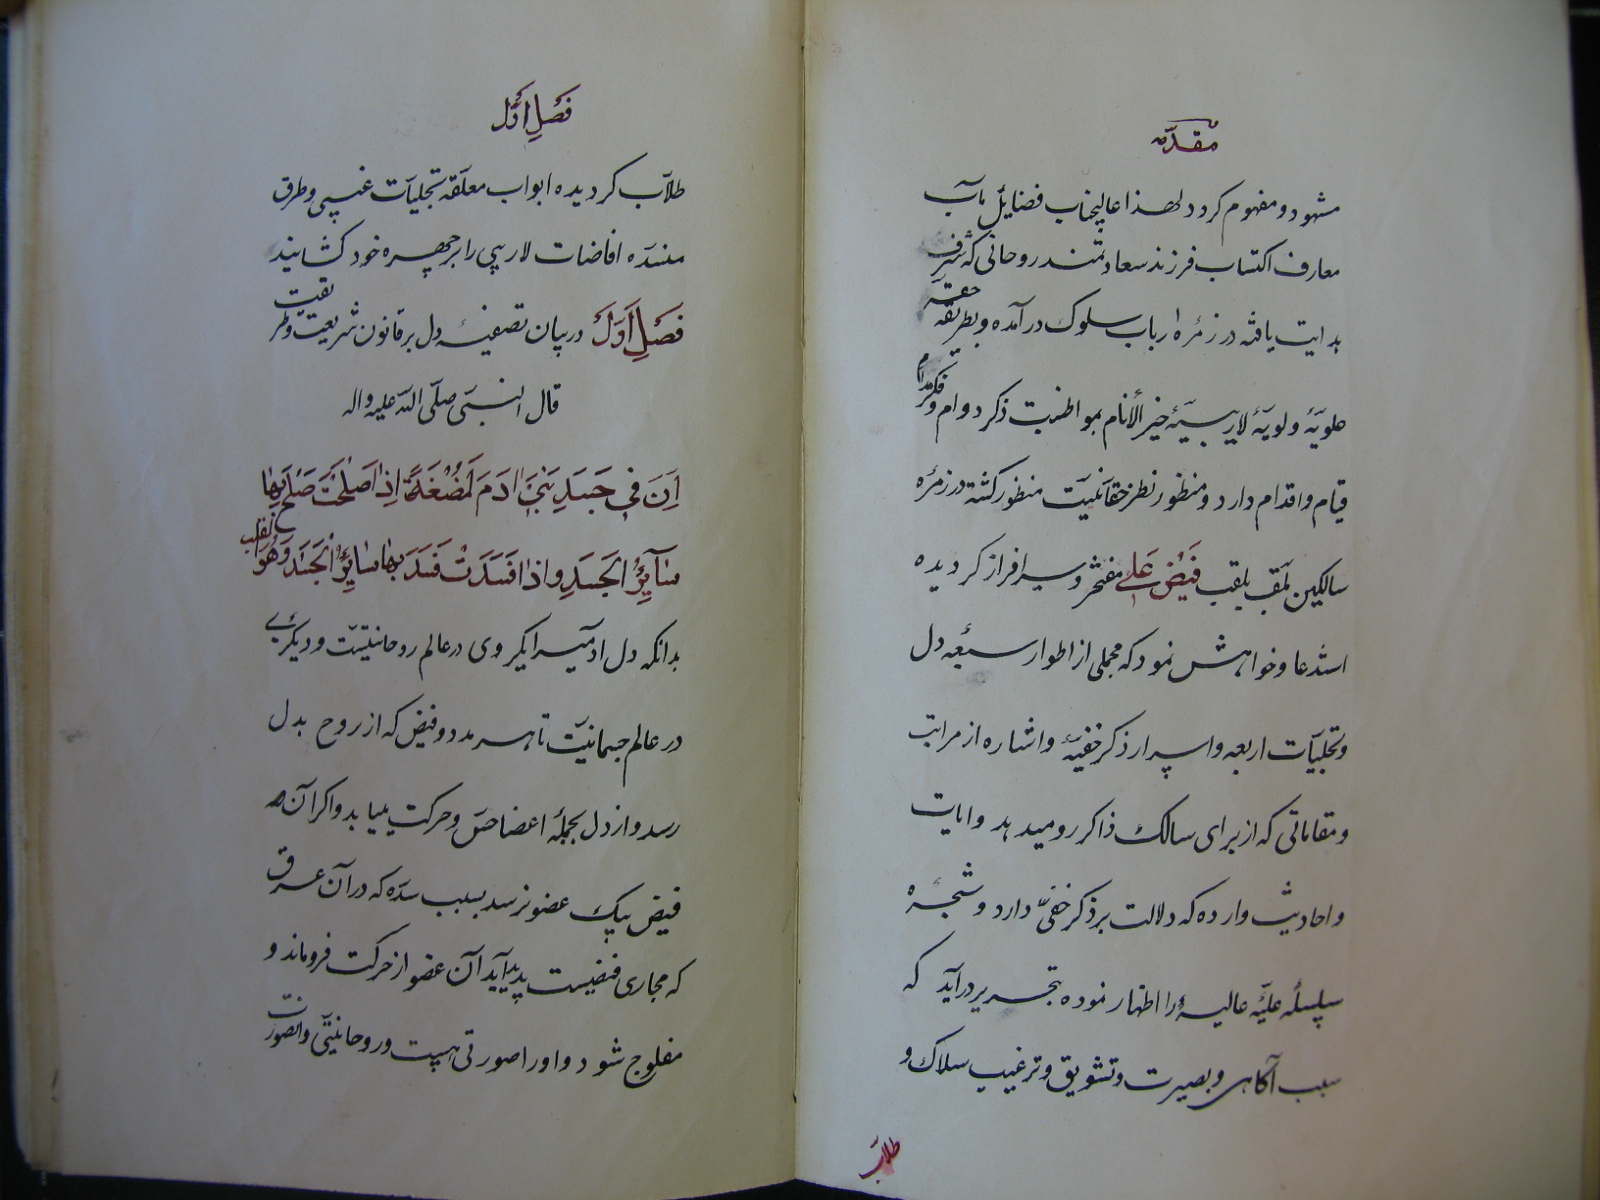 مقدّمه
مشهود و مفهوم کردد لهذا عالیجناب فضایل مآب
معارف اکتساب فرزند سعادتمند روحانی که شرف
هدایت یافته در زمرهٔ ارباب سلوک درآمده و بطریقه حقه
علویّهٔ ولویّهٔ لاریبیّهٔ خیر الأنام بمواظبت ذکر دوام و فکر مدام
قیام و اقدام دارد و منظور نظر حقانیّت منظور کشته در زمرهٔ
سالکین بلقب فیض علی مفتخر و سرافراز کردیده
استدعا و خواهش نمود که مجملی از اطوار سبعهٔ دل
و تجلیّات اربعه و اسرار ذکر خفیّهٔ و اشاره از مراتب
و مقاماتی که از برای سالک ذاکر رو میدهد و ایات
و احادیث وارده که دلالت بر ذکر خفیّ دارد و شجرهٔ
سلسلهٔ علیّهٔ عالیهٔ را اظهار نموده بتحریر درآید که
سبب آکاهی و بصیرت و تشویق و ترغیب سلاک و
طلاّب
فَصْلِ اوَّل
طلاّب کردیده ابواب معلّقه تجلیّات غیبی و طرق
منسدّه افاضات لاریبی را بر چهره خود کشایند
فَصْلِ اَوَّل در بیان تصفیهٔ دل بر قانون شریعت و طریقت
قال النبیّ صلّی اللّه علیه و اله
اِنَ فی جَسَدِ بَنیَ ادَمَ لَمُضْغَةً اِذاصَلحَتْ صَلَحَ بِها
سآئِرُ الجَسَدِ و اِذافَسَدَتْ فَسَدَ بِها سایِرُ الْجَسَدِ وَ هُوَ القلب
بدانکه دل ادمیرا یکروی در عالم روحانیّتست و دیکری
در عالم جسمانیّت تا هر مدد و فیض که از روح بدل
رسد و از دل بجملهٔ اعضا حسّ و حرکت بیابد و اکر آن
فیض بیک عضو نرسد بسبب سدّه که در آن عرق
که مجاری فیضست پدید آید آن عضو از حرکت فروماند و
مفلوج شود و او را صورتی هست و روحانیّتی و انصورت